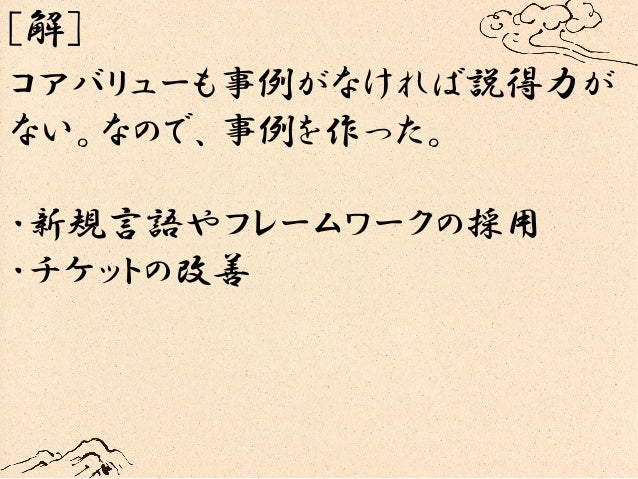 [解]
コアバリューも事例がなければ説得力が
ない。なので、事例を作った。
・新規言語やフレームワークの採用
・チケットの改善